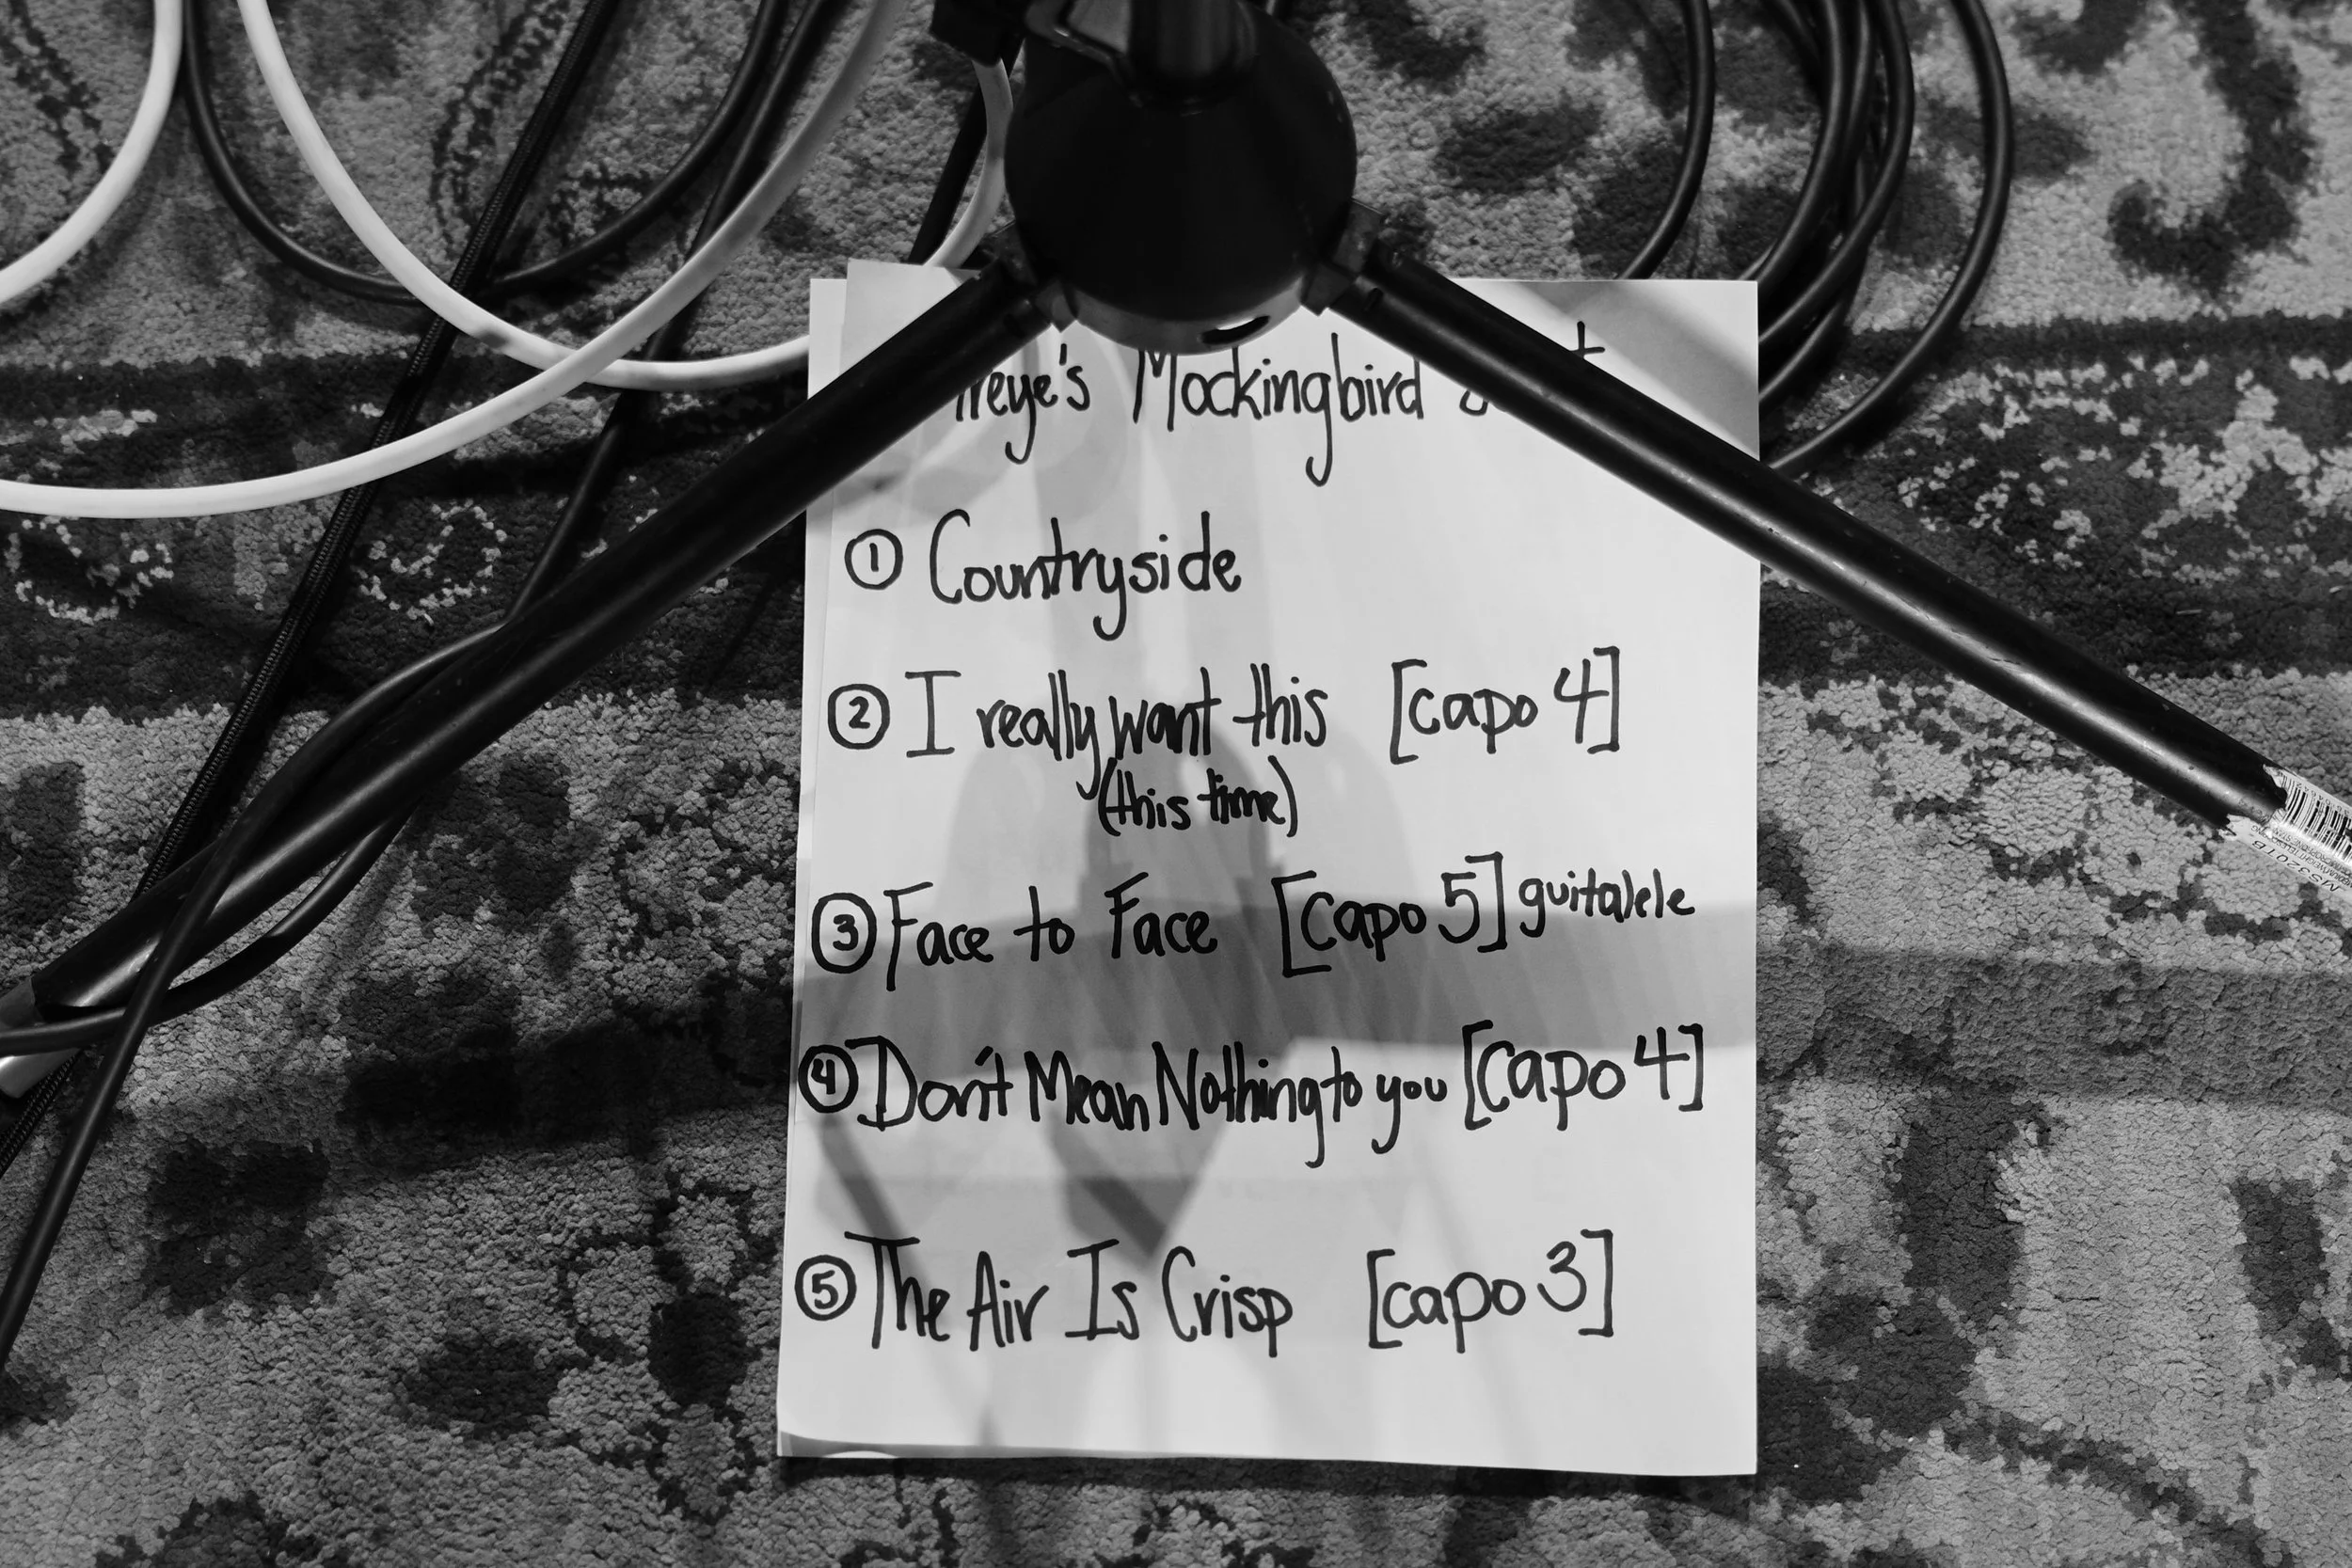 Mockingbird
① Countryside
② I really want this [capo 4]
(this time)
③ Face to Face [capo 5] guitalele
④ Don't Mean Nothing to you [capo 4]
⑤ The Air Is Crisp [capo 3]